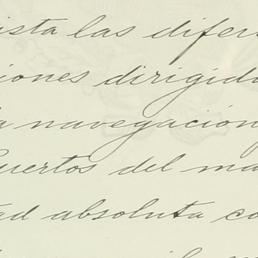 ista las difer
iones dirigid
a navegación
uertos del ma
ad absoluta co